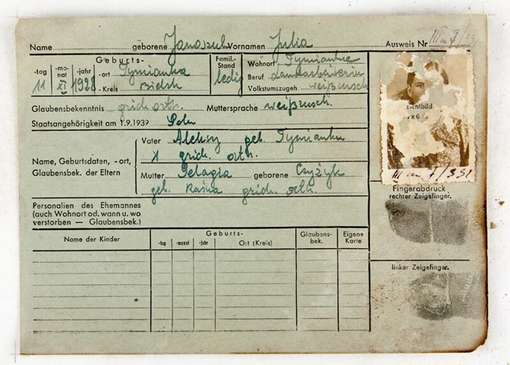 Name geborene Janczuk Vornamen Julia Ausweis Nr.
-tag -mo-nat -jahr Geburts- -ort, (Kreis) Famil.-Stand Wohnort Tymianka
11 XI 1928 Tymianka ledig Beruf Landarbeiterin
Bielsk Volkstumszugeh weißrusch.
Glaubensbekenntnis griech orth. Muttersprache weißrusch.
Staatsangehörigkeit am 1.9.1939 Pole
Vater Aleksy geb. Tymianka
Name, Geburtsdaten, -ort, griech. orth.
Glaubensbek. der Eltern Mutter Pelagia geborene Czyżyk
geb. griech. orth.
Personalien des Ehemannes
(auch Wohnort od. wann u. wo
verstorben — Glaubensbek.)
Name der Kinder Geburts- Glaubens-bek. Eigene Karte
-tag -monat -jahr Ort (Kreis)
Lichtbild
Fingerabdruck
rechter Zeigefinger.
linker Zeigefinger.